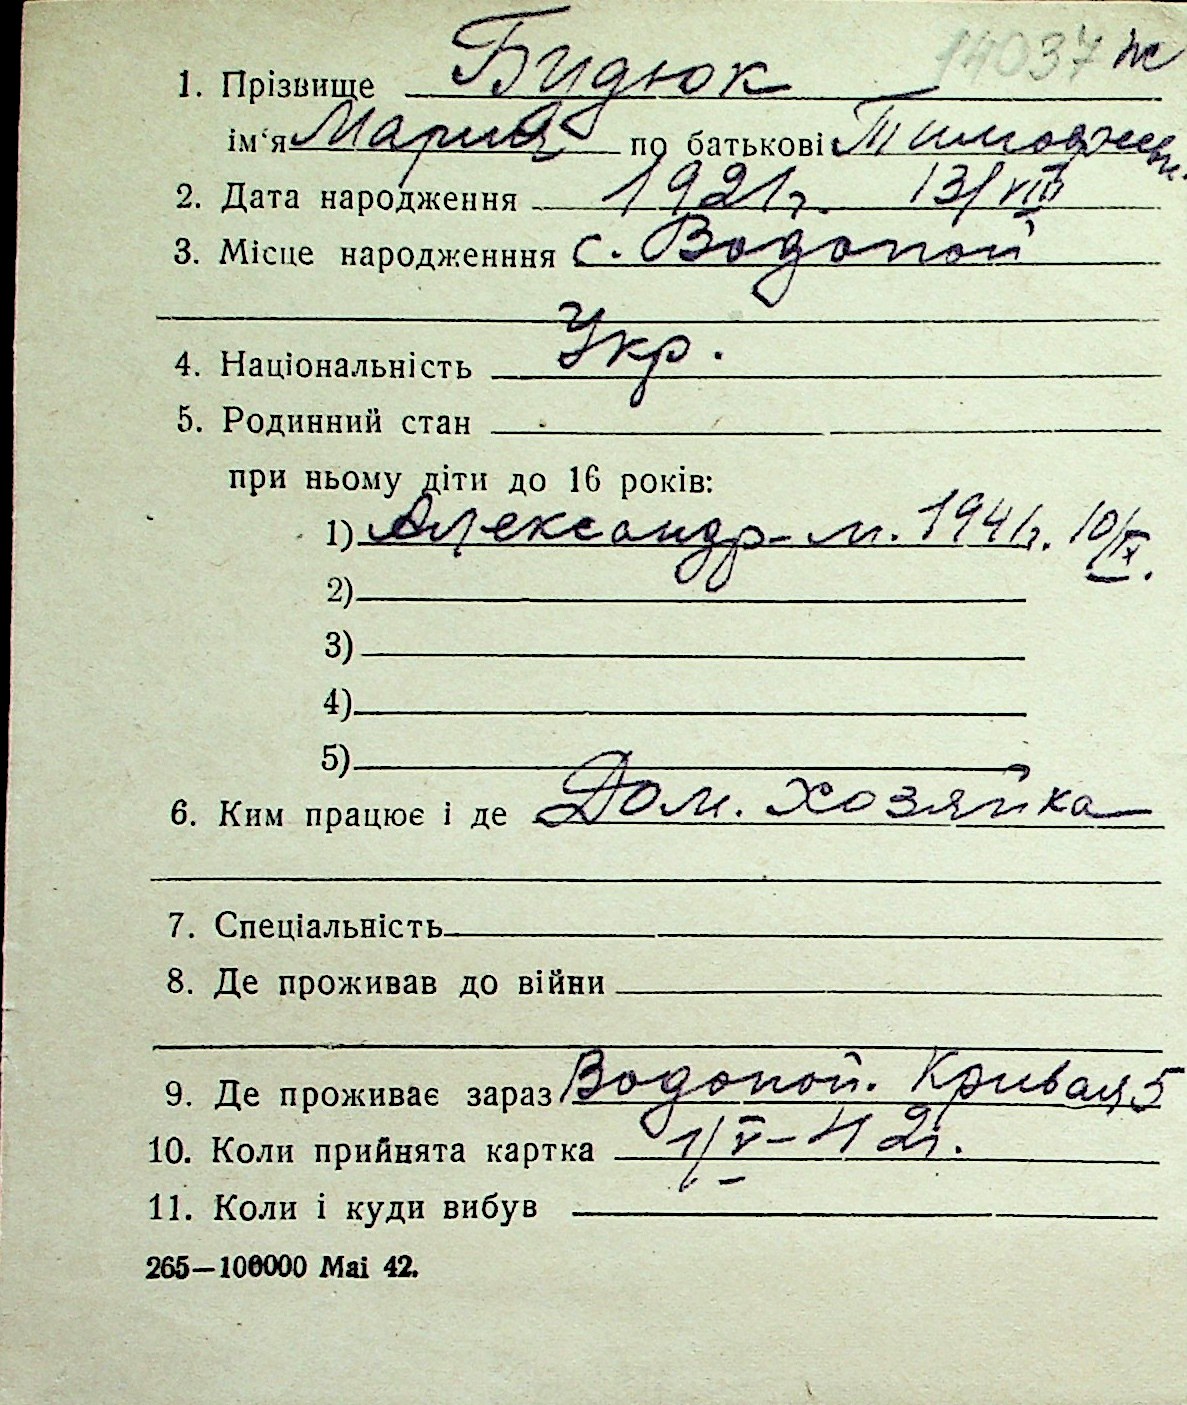 14037 ж
1. Прізвище Бидюк
ім‘я Мария по батькові Тимофеевн.
2. Дата народження 1921 г. 13/VIII
3. Місце народженння с. Водопой
4. Національність Укр.
5. Родинний стан
при ньому діти до 16 років:
1) Александр - м. 1941 г. 10/IX.
2)
3)
4)
5)
6. Ким працює і де Дом. хозяйка
7. Спеціальність
8. Де проживав до війни
9. Де проживає зараз Водопой. Кривая 5
10. Коли прийнята картка 1/V - 42 г.
11. Коли і куди вибув
265—100000 Mai 42.